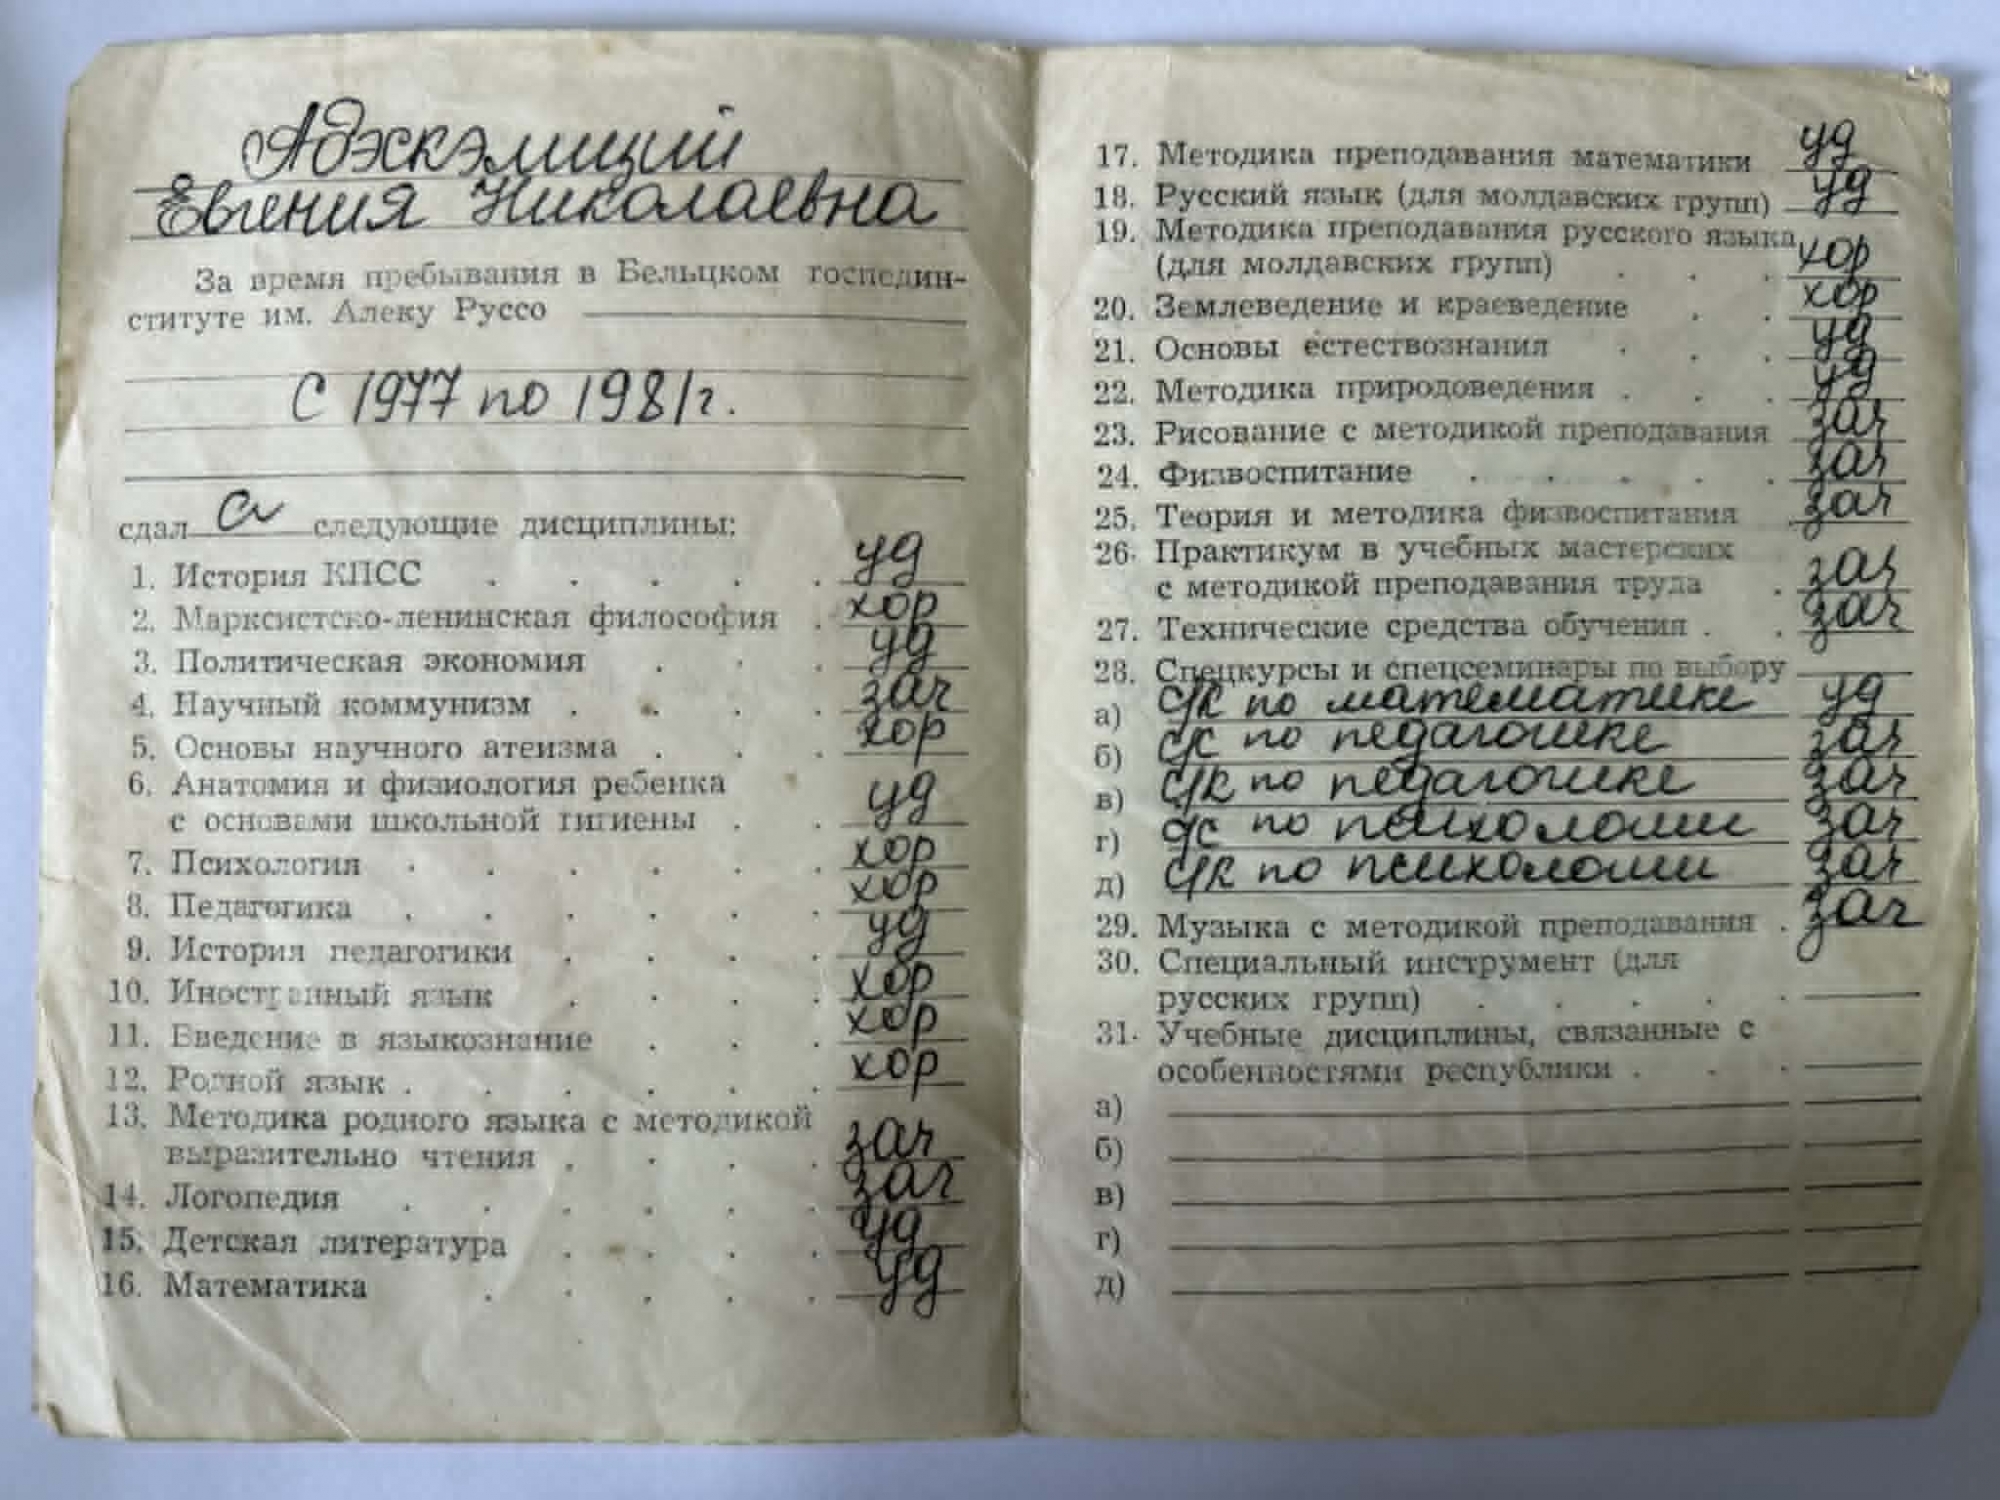 Адэскэлиций
Евгения Николаевна
За время пребывания в Бельцком господин-
ституте им. Алеку Руссо
с 1977 по 1981г.
сдал а следующие дисциплины:
1. История КПСС . . . . . уд
2. Марксистско-ленинская философия . хор
3. Политическая экономия . . . уд
4. Научный коммунизм . . . . зач
5. Основы научного атеизма . . . хор
6. Анатомия и физиология ребенка
с основами школьной гигиены . . уд
7. Психология . . . . . . хор
8. Педагогика . . . . . . хор
9. История педагогики . . . . уд
10. Иностранный язык . . . . хор
11. Введение в языкознание . . . хор
12. Родной язык . . . . . . хор
13. Методика родного языка с методикой
выразительно чтения . . . . зач
14. Логопедия . . . . . . зач
15. Детская литература . . . . уд
16. Математика . . . . . уд
17. Методика преподавания математики уд
18. Русский язык (для молдавских групп) уд
19. Методика преподавания русского языка
(для молдавских групп) . . . хор
20. Землеведение и краеведение . . хор
21. Основы естествознания . . . уд
22. Методика природоведения . . . уд
23. Рисование с методикой преподавания зач
24. Физвоспитание . . . . . зач
25. Теория и методика физвоспитания . зач
26. Практикум в учебных мастерских
с методикой преподавания труда . зач
27. Технические средства обучения . . зач
28. Спецкурсы и спецсеминары по выбору
а) с/к по математике уд
б) с/с по педагогике зач
в) с/к по педагогике зач
г) с/с по психологии зач
д) с/к по психологии зач
29. Музыка с методикой преподавания . зач
30. Специальный инструмент (для
русских групп) . . . . .
31. Учебные дисциплины, связанные с
особенностями республики . . .
а)
б)
в)
г)
д)